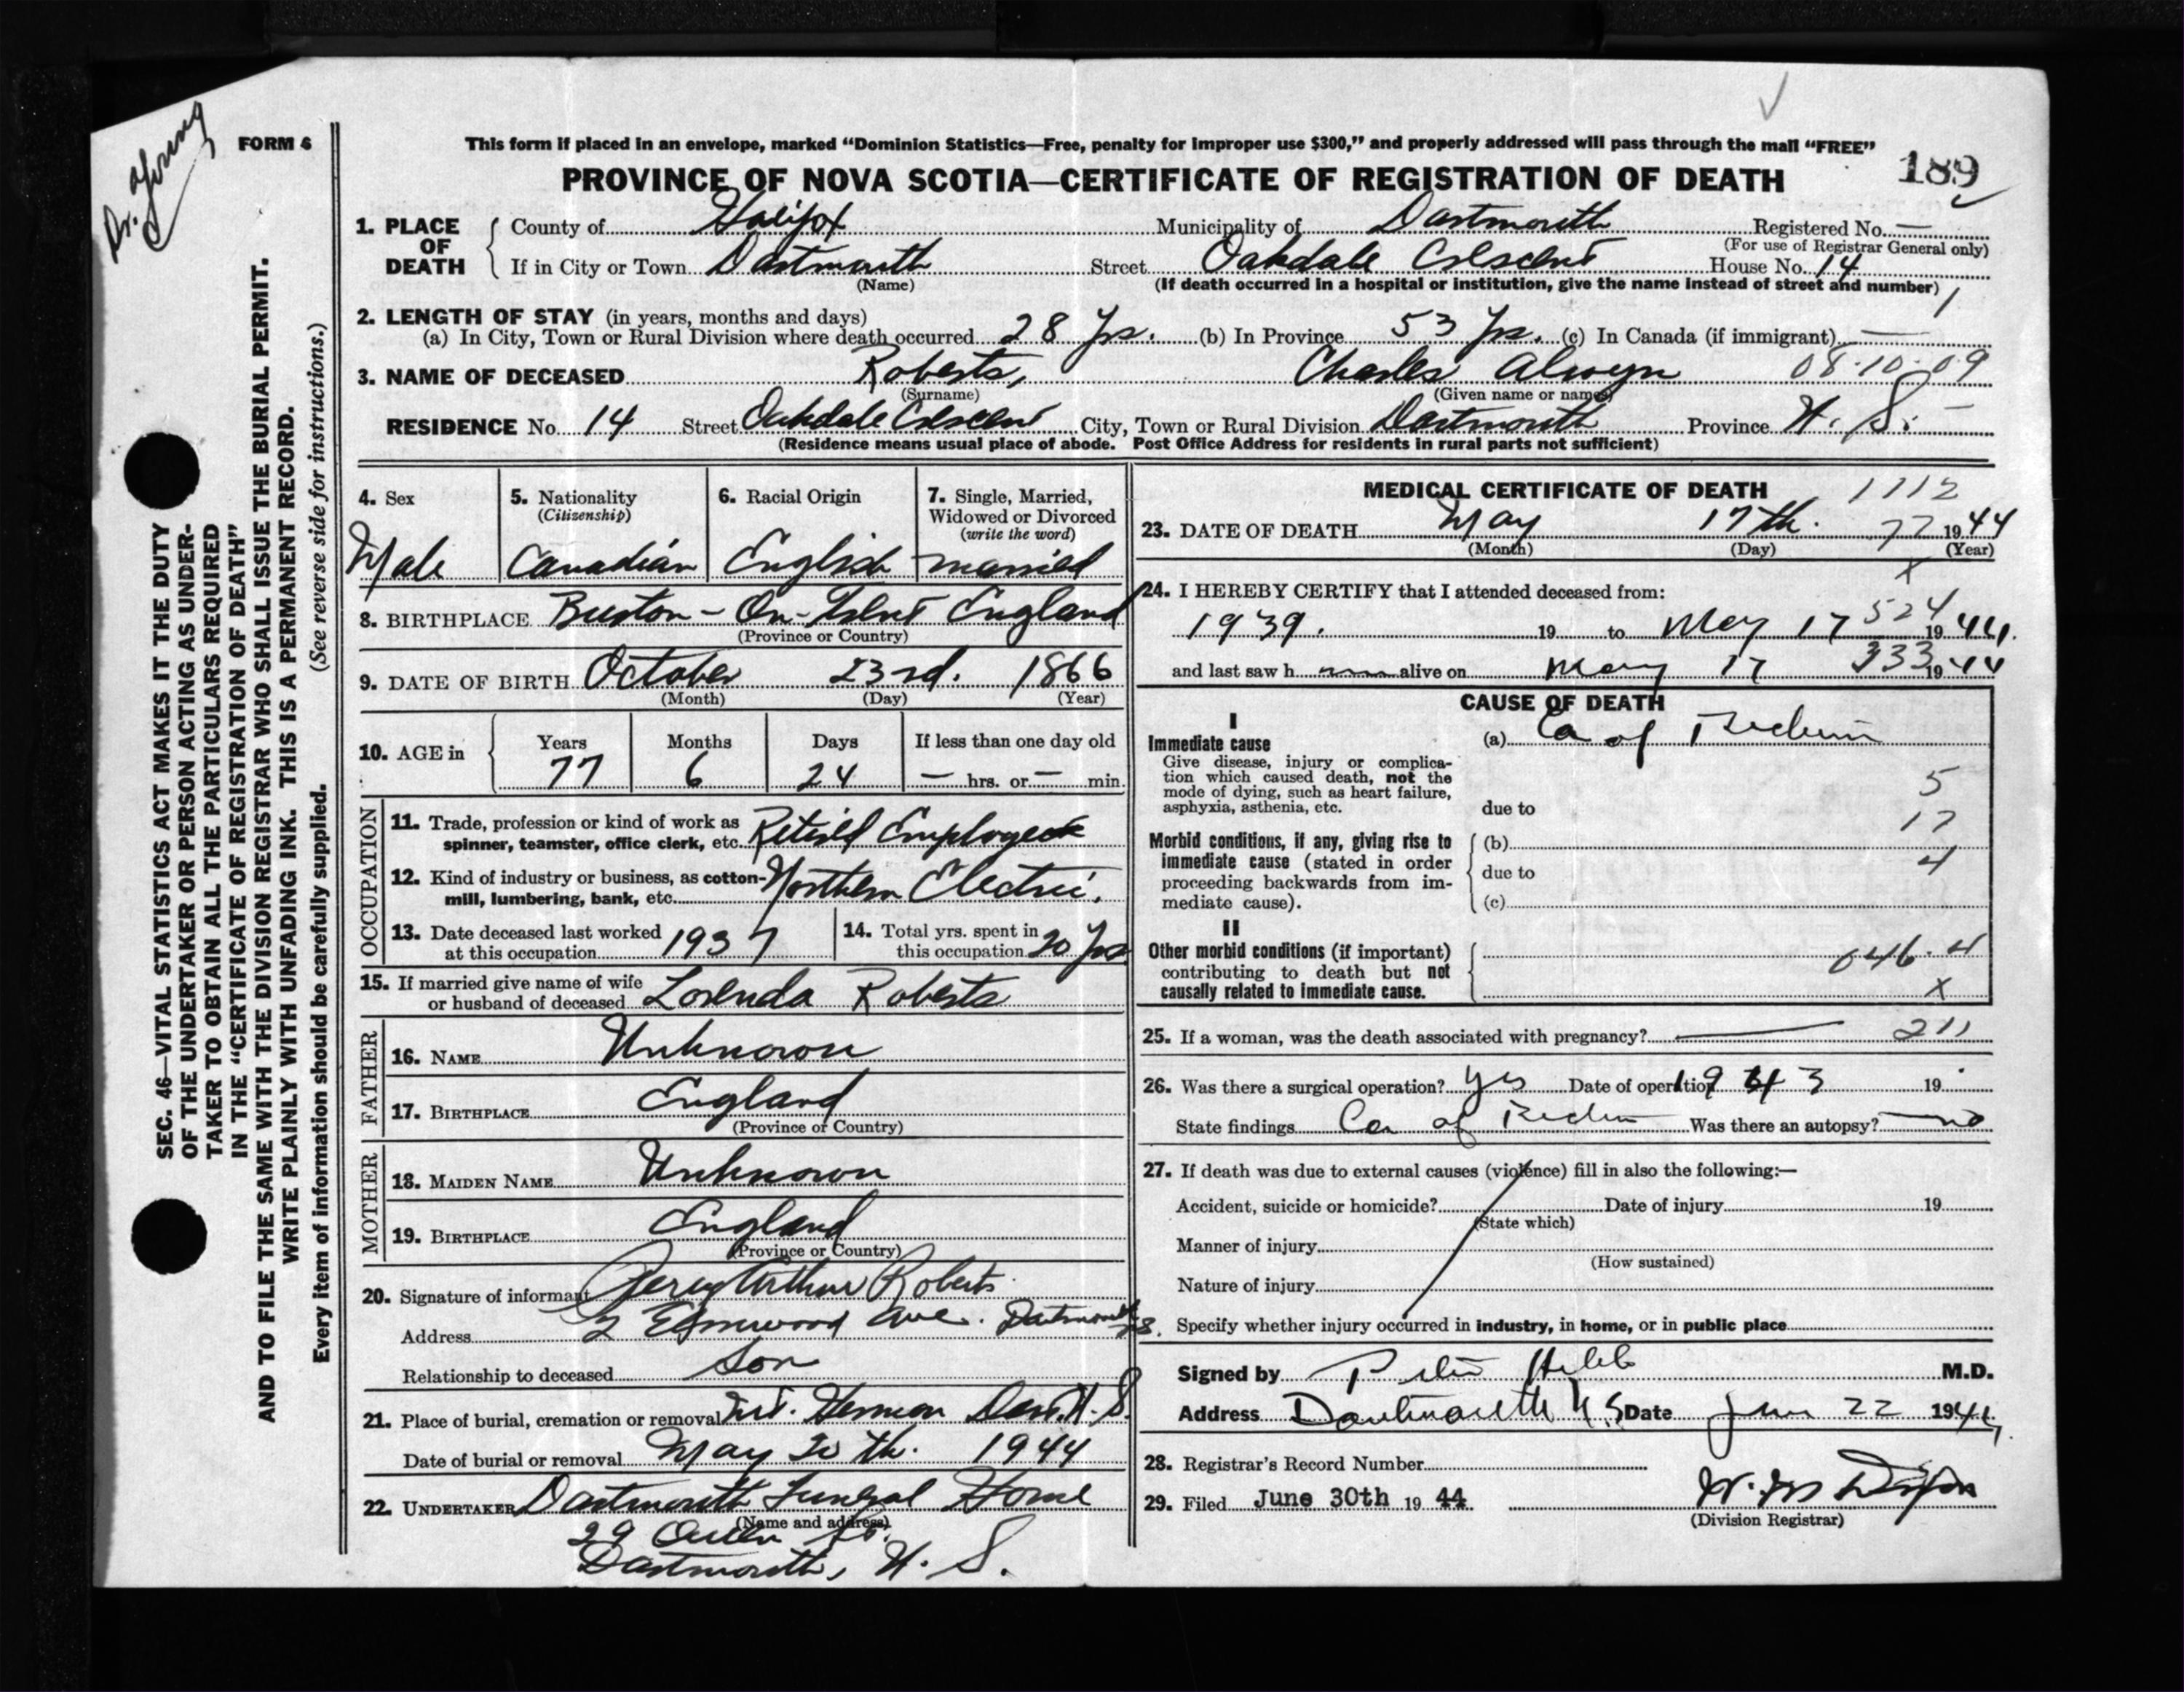 Dr. Young
FORM 6
This form if placed in an envelope, marked “Dominion Statistics—Free, penalty for improper use $300,” and properly addressed will pass through the mail “FREE”
PROVINCE OF NOVA SCOTIA—CERTIFICATE OF REGISTRATION OF DEATH
189
SEC. 46—VITAL STATISTICS ACT MAKES IT THE DUTY
OF THE UNDERTAKER OR PERSON ACTING AS UNDER-
TAKER TO OBTAIN ALL THE PARTICULARS REQUIRED
IN THE “CERTIFICATE OF REGISTRATION OF DEATH”
AND TO FILE THE SAME WITH THE DIVISION REGISTRAR WHO SHALL ISSUE THE BURIAL PERMIT.
WRITE PLAINLY WITH UNFADING INK. THIS IS A PERMANENT RECORD.
Every item of information should be carefully supplied. (See reverse side for instructions.)
1. PLACE OF DEATH
County of Halifax Municipality of Dartmouth Registered No. —
(For use of Registrar General only)
If in City or Town Dartmouth Street Oakdale Crescent House No. 14
(Name) (If death occurred in a hospital or institution, give the name instead of street and number)
2. LENGTH OF STAY (in years, months and days)
(a) In City, Town or Rural Division where death occurred 28 Yrs. (b) In Province 53 Yrs. (c) In Canada (if immigrant) —
3. NAME OF DECEASED Roberts, Charles Alwyn 08·10·09
(Surname) (Given name or names)
RESIDENCE No. 14 Street Oakdale Crescent City, Town or Rural Division Dartmouth Province N. S. —
(Residence means usual place of abode. Post Office Address for residents in rural parts not sufficient)
4. Sex
Male
5. Nationality
(Citizenship)
Canadian
6. Racial Origin
English
7. Single, Married,
Widowed or Divorced
(write the word)
married
8. BIRTHPLACE Burton-On-Trent England
(Province or Country)
9. DATE OF BIRTH October 23rd. 1866
(Month) (Day) (Year)
10. AGE in
Years Months Days If less than one day old
77 6 24 — hrs. or — min.
OCCUPATION
11. Trade, profession or kind of work as
spinner, teamster, office clerk, etc. Retired Employee
12. Kind of industry or business, as cotton-
mill, lumbering, bank, etc. Northern Electric.
13. Date deceased last worked
at this occupation 1937
14. Total yrs. spent in
this occupation 20 Yrs
15. If married give name of wife
or husband of deceased Lorenda Roberts
FATHER
16. NAME Unknown
17. BIRTHPLACE England
(Province or Country)
MOTHER
18. MAIDEN NAME Unknown
19. BIRTHPLACE England
(Province or Country)
20. Signature of informant Percy Arthur Roberts
Address 2 Elmwood Ave. Dartmouth N.S.
Relationship to deceased Son
21. Place of burial, cremation or removal Mt. Hermon Dart. N. S.
Date of burial or removal May 20th. 1944
22. UNDERTAKER Dartmouth Funeral Home
(Name and address)
29 Queen St.
Dartmouth, N. S.
MEDICAL CERTIFICATE OF DEATH 1112
23. DATE OF DEATH May 17th. 77 1944
(Month) (Day) (Year)
x
24. I HEREBY CERTIFY that I attended deceased from:
524
1939. 19 to May 17 1944.
333
and last saw h alive on May 17 1944
CAUSE OF DEATH
I
Immediate cause
Give disease, injury or complica-
tion which caused death, not the
mode of dying, such as heart failure,
asphyxia, asthenia, etc.
(a) Ca of Rectum
5
due to
17
Morbid conditions, if any, giving rise to
immediate cause (stated in order
proceeding backwards from im-
mediate cause).
(b)
4
due to
(c)
II
Other morbid conditions (if important)
contributing to death but not
causally related to immediate cause.
046.4
x
25. If a woman, was the death associated with pregnancy? — 211
26. Was there a surgical operation? Yes Date of operation 1943 19
State findings Ca of Rectum Was there an autopsy? no
27. If death was due to external causes (violence) fill in also the following:—
Accident, suicide or homicide? Date of injury 19
(State which)
Manner of injury
(How sustained)
Nature of injury
Specify whether injury occurred in industry, in home, or in public place
Signed by M.D.
Address Dartmouth N.S Date June 22 1944
28. Registrar's Record Number
29. Filed June 30th 19 44
(Division Registrar)